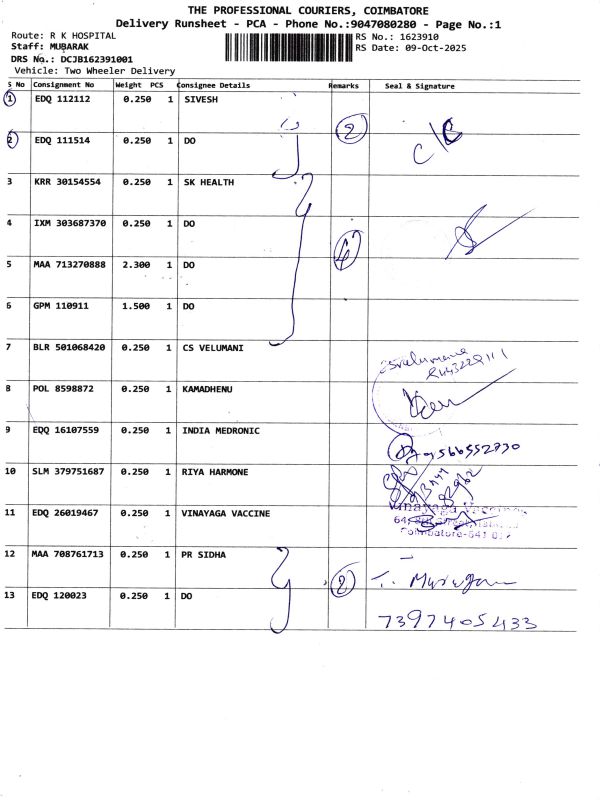 THE PROFESSIONAL COURIERS, COIMBATORE
Delivery Runsheet - PCA - Phone No.:9047080280 - Page No.:1
Route: R K HOSPITAL
RS No.: 1623910
Staff: MUBARAK
RS Date: 09-Oct-2025
DRS No.: DCJB162391001
Vehicle: Two Wheeler Delivery
S No Consignment No Weight PCS Consignee Details Remarks Seal & Signature
1 EDQ 112112 0.250 1 SIVESH
2
2 EDQ 111514 0.250 1 DO
3 KRR 30154554 0.250 1 SK HEALTH
4 IXM 303687370 0.250 1 DO
4
5 MAA 713270888 2.300 1 DO
6 GPM 110911 1.500 1 DO
7 BLR 501068420 0.250 1 CS VELUMANI
CSvelumani
8 POL 8598872 0.250 1 KAMADHENU
9 EDQ 16107559 0.250 1 INDIA MEDRONIC
9566552730
10 SLM 379751687 0.250 1 RIYA HARMONE
11 EDQ 26019467 0.250 1 VINAYAGA VACCINE
Vinayaga Vaccines
Coimbatore-641 012
12 MAA 708761713 0.250 1 PR SIDHA
2 T. Murugan
13 EDQ 120023 0.250 1 DO
7397405433